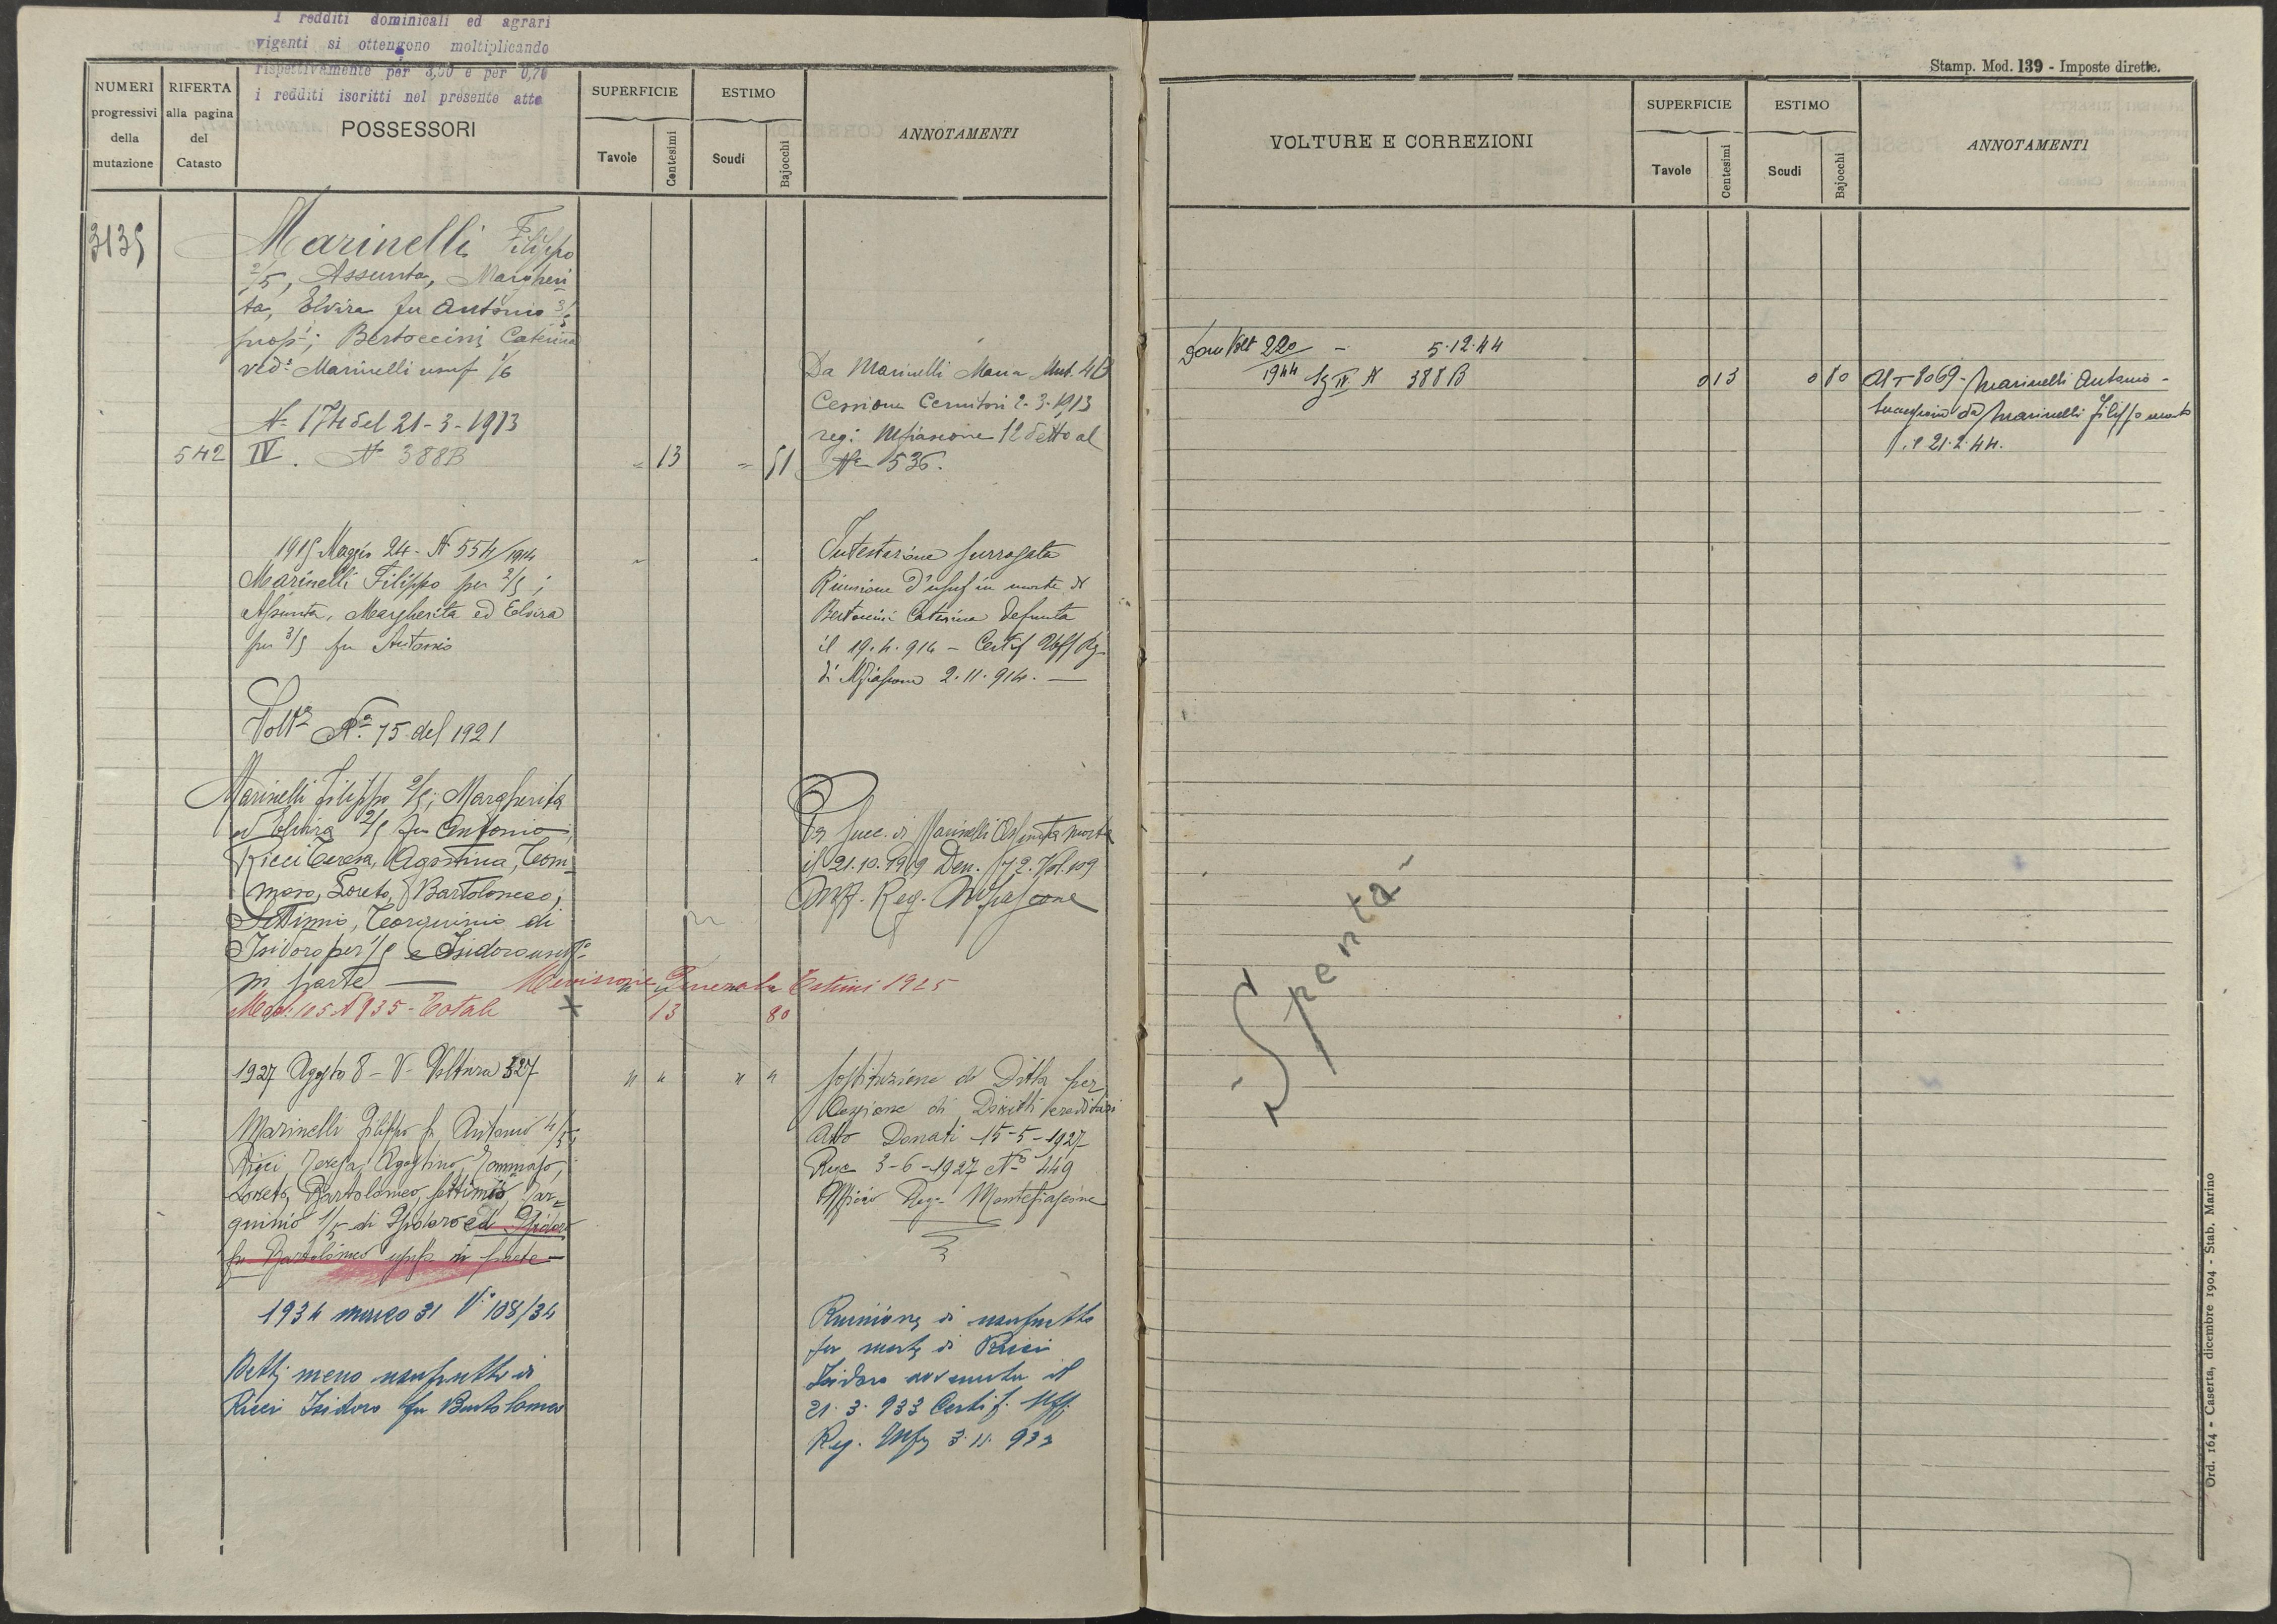 I redditi dominicali ed agrari
vigenti si ottengono moltiplicando
rispettivamente per 3,00 e per 0,70
i redditi iscritti nel presente atto
NUMERI
progressivi
della
mutazione
RIFERTA
alla pagina
del
Catasto
POSSESSORI
SUPERFICIE
Tavole
Centesimi
ESTIMO
Scudi
Bajocchi
ANNOTAMENTI
3135
Marinelli Filippo
2/5, Assunta, Margheri
ta, Elvira fu Antonio 3/5
prop; Bertoccini Caterina
ved. Marinelli usuf 1/6
N. 174 del 21-3-1913
542 IV. N. 388B 13 51
Da Marinelli Maria Mut. 4B
Cessione Cernitori 2-3-1913
reg: Mfiascone 12 detto al
N. 536.
1915 Maggio 24 - N 554/1914
Marinelli Filippo per 2/5;
Assunta, Margherita ed Elvira
per 3/5 fu Antonio
Intestazione surrogata
Riunione d'usuf in morte di
Bertoccini Caterina defunta
il 19.4.914 - Certif Uff Rg
di Mfiascone 2.11.914. —
Volt. N. 75 del 1921
Marinelli Filippo 2/5; Margherita
ed Elvira 2/5 fu Antonio;
Ricci Teresa, Agostina, Tom-
maso, Loreto, Bartolomeo,
Settimio, Tarquinio di
Isidoro per 1/5 e Isidoro usuf
in parte —
Per succ. di Marinelli Assunta morta
il 21.10.1919 Den. 72. Vol. 109
Uff. Reg. Mfiascone
Revisione Generale Estimi 1925
Mod. 105 N 935 - Totale 13 80
1927 Agosto 8 - V - Voltura 327 " " " "
Marinelli Filippo fu Antonio 4/5
Ricci Teresa, Agostino, Tommaso,
Loreto, Bartolomeo, Settimio, Tar-
quinio 1/5 di Isidoro ed Isidoro
fu Bartolomeo usuf in parte —
Sostituzione di Ditta per
Cessione di Diritti ereditari
Atto Donati 15-5-1927
Reg 3-6-1927 N. 449
Ufficio Reg. Montefiascone
1934 marzo 31 V. 108/34
Detti meno usufrutto di
Ricci Isidoro fu Bartolomeo
Riunione di usufrutto
per morte di Ricci
Isidoro avvenuta il
21.3.933 Certif. Uff.
Reg. Mf 3.11.933
Stamp. Mod. 139 - Imposte dirette.
VOLTURE E CORREZIONI
SUPERFICIE
Tavole
Centesimi
ESTIMO
Scudi
Bajocchi
ANNOTAMENTI
Dom Volt 220/1944 - 5.12.44
Sz IV N 388B 0 13 0 80
Al - 8069 - Marinelli Antonio -
Successione da Marinelli Filippo morto
il 21.2.44.
- Spenta -
Ord. 164 - Caserta, dicembre 1904 - Stab. Marino